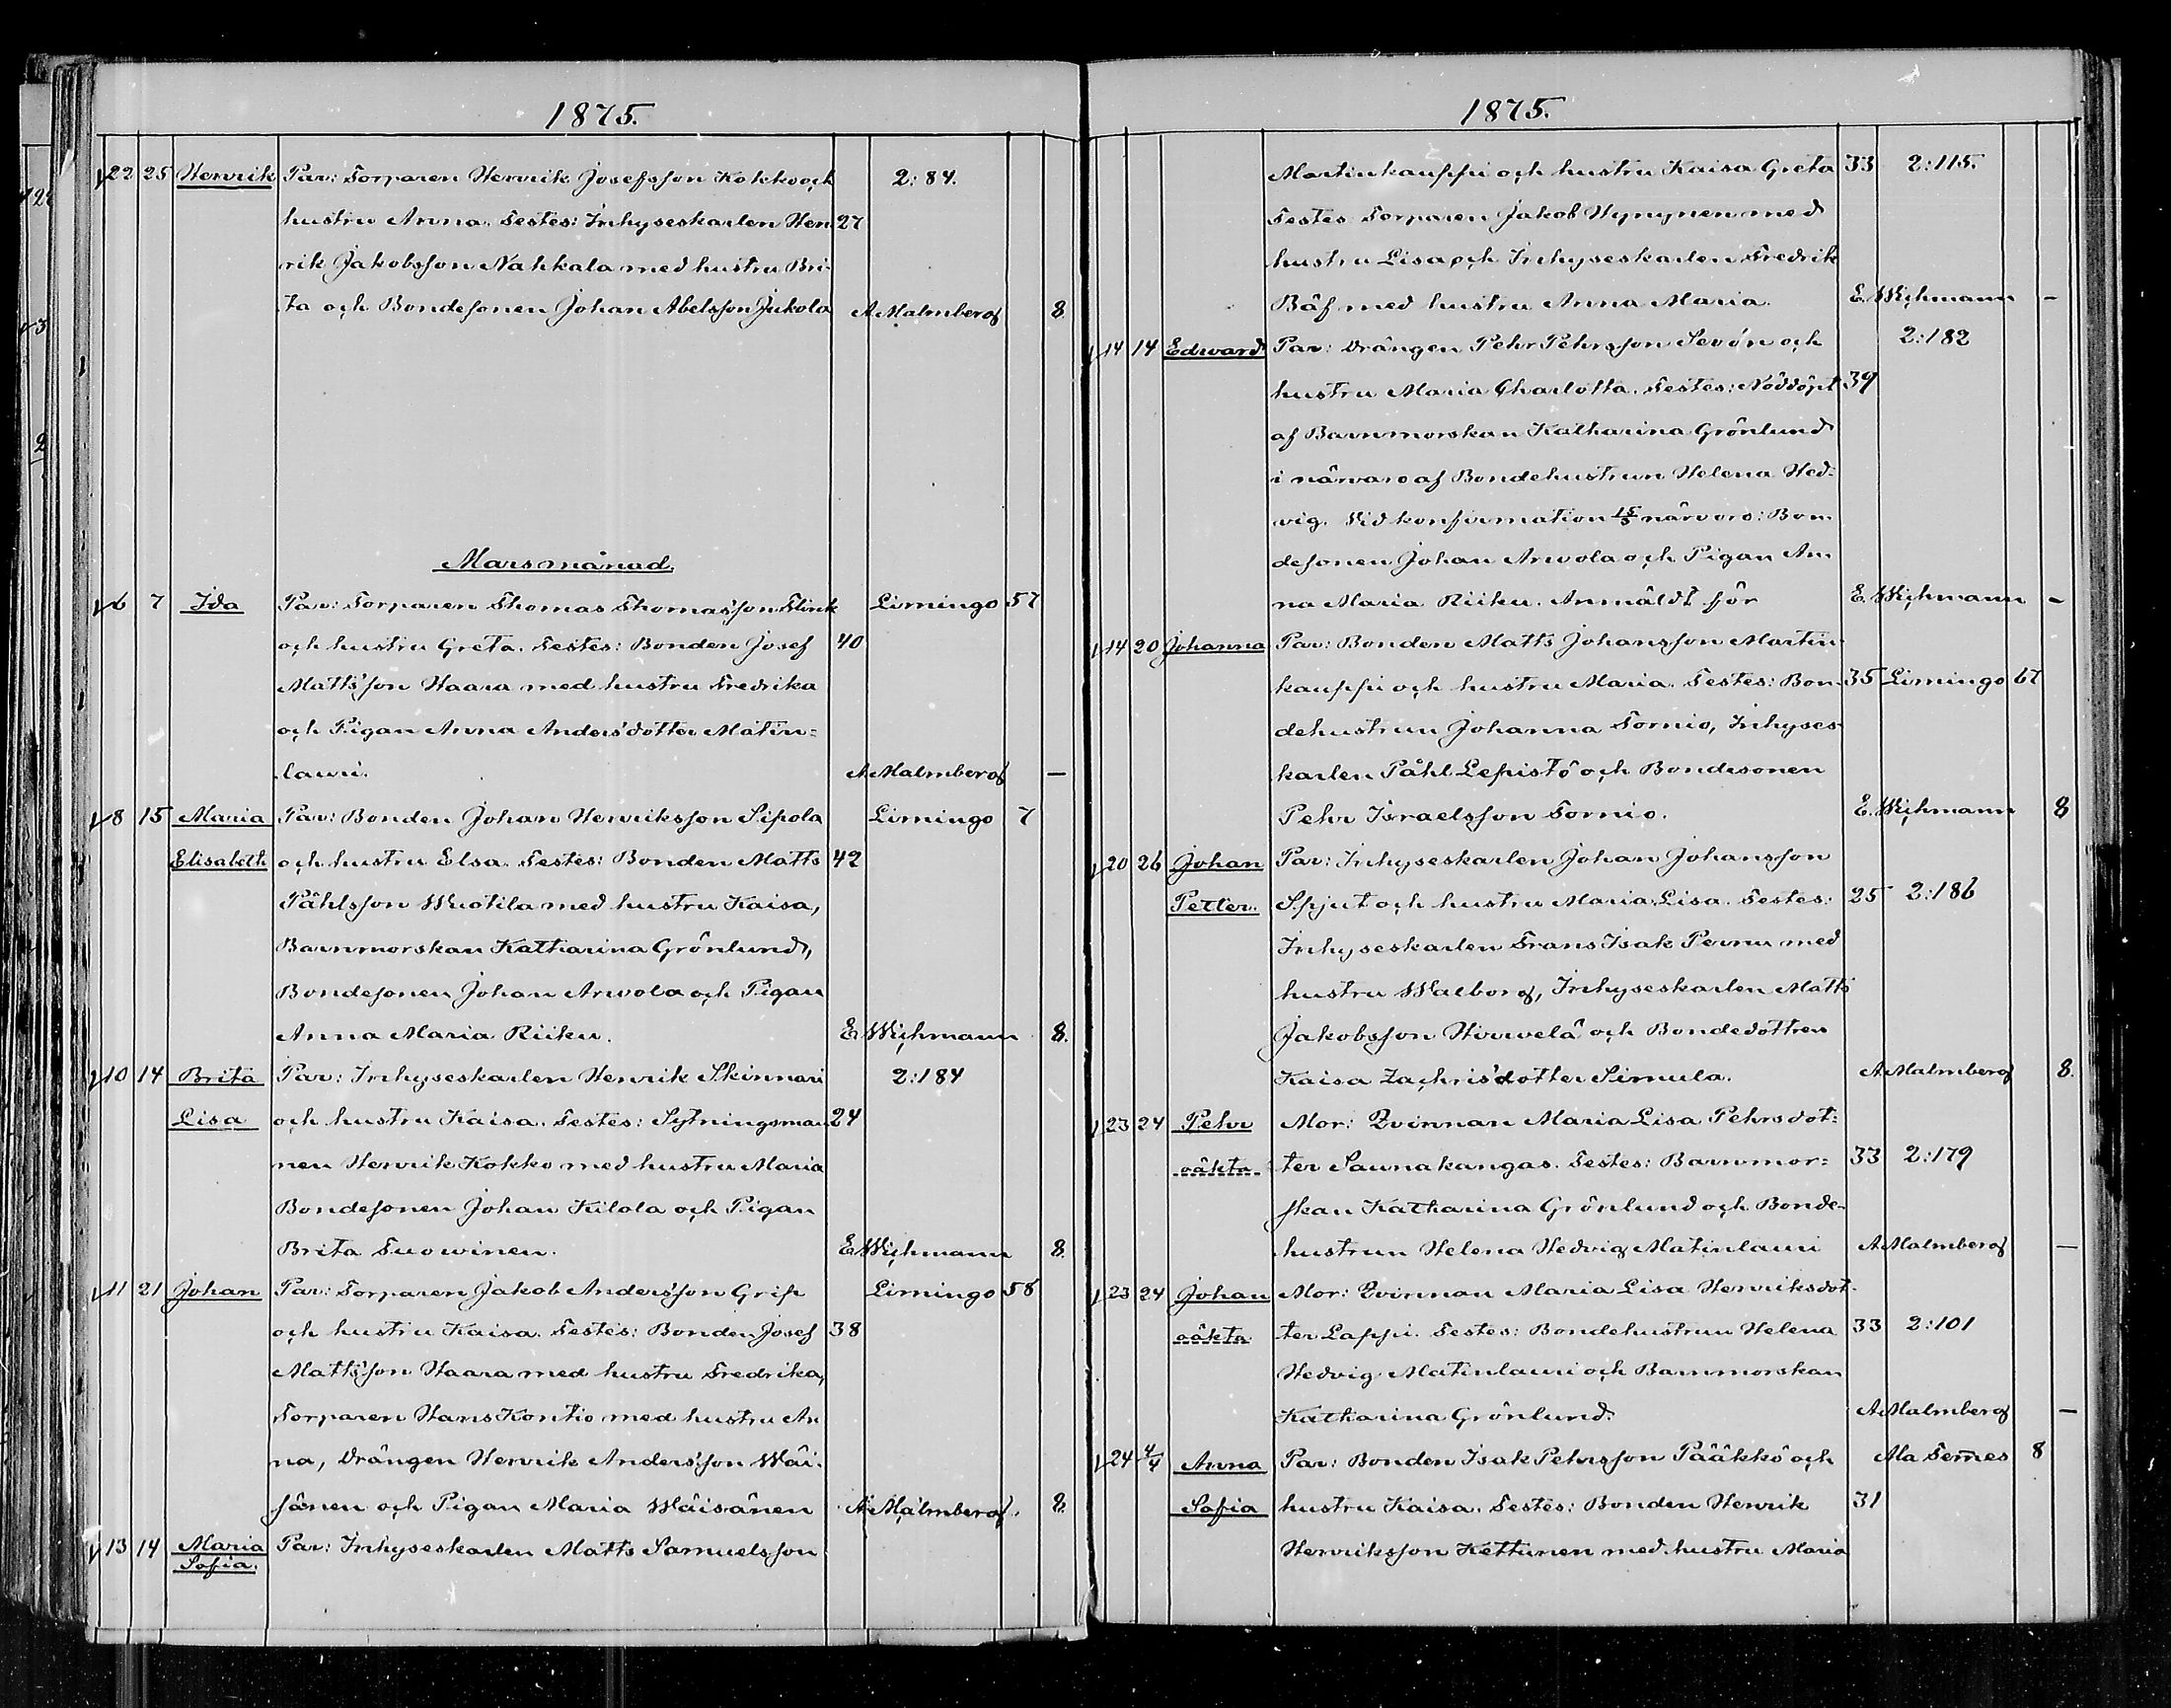 1875.
22 25 Henrik Par: Torparen Henrik Josefsson Kokko och 2:84.
hustru Anna. Testes: Inhyseskarlen Hen 27
rik Jakobsson Nahkala med hustru Bri-
ta och Bondesonen Johan Abelsson Jukola A Malmberg 8
Marsmånad.
6 7 Ida Par: Torparen Thomas Thomasson Flink Limingo 57
och hustru Greta. Testes: Bonden Josef 40
Mattsson Haara med hustru Fredrika
och Pigan Anna Andersdotter Matin=
lauri. A Malmberg —
8 15 Maria Par: Bonden Johan Henriksson Sipola Limingo 7
Elisabeth och hustru Elsa. Testes: Bonden Matts 42
Påhlsson Wuotila med hustru Kaisa,
Barnmorskan Katharina Grönlund,
Bondesonen Johan Arvola och Pigan
Anna Maria Riiku. E Wichmann 8.
10 14 Brita Par: Inhyseskarlen Henrik Skinnari 2:184
Lisa och hustru Kaisa. Testes: Sytningsman 24
nen Henrik Kokko med hustru Maria
Bondesonen Johan Kilola och Pigan
Brita Suowinen. E Wichmann 8.
11 21 Johan Par: Torparen Jakob Andersson Grip Limingo 58
och hustru Kaisa. Testes: Bonden Josef 38
Mattsson Haara med hustru Fredrika,
Torparen Hans Kontio med hustru An
na, Drängen Henrik Andersson Wäi-
sänen och Pigan Maria Wäisänen A Malmberg. 8.
13 14 Maria Par: Inhyseskarlen Matts Samuelsson
Sofia.
1875.
Martinkauppi och hustru Kaisa Greta 33 2:115.
Testes Torparen Jakob Hynynen med
hustru Lisa och Inhyseskarlen Fredrik
Bäf med hustru Anna Maria. E. Wichmann –
14 14 Edward Par: Drängen Pehr Pehrsson Sevón och 2:182
hustru Maria Charlotta. Testes: Nöddöpt 39
af Barnmorskan Katharina Grönlund
i närvaro af Bondehustrun Helena Hed=
vig. Vid konfirmation 15/3 närvoro: Bon-
desonen Johan Arvola och Pigan An-
na Maria Riiku. Anmäldt för E. Wichmann –
14 20 Johanna Par: Bonden Matts Johansson Martin
kauppi och hustru Maria. Testes: Bon- 35 Limingo 67
dehustrun Johanna Tornio, Inhyses-
karlen Påhl Lepistö och Bondesonen
Pehr Israelsson Tornio. E. Wichmann 8
20 26 Johan Par: Inhyseskarlen Johan Johansson
Petter. Spjut och hustru Maria Lisa. Testes: 25 2:186
Inhyseskarlen Frans Isak Pernu med
hustru Walborg, Inhyseskarlen Matts
Jakobsson Hirvelä och Bondedottren
Kaisa Zachrisdotter Simula. A Malmberg 8.
23 24 Pehr Mor: Qvinnan Maria Lisa Pehrsdot=
oäkta ter Saunakangas. Testes: Barnmor= 33 2:179
skan Katharina Grönlund och Bonde-
hustrun Helena Hedvig Matinlauri A Malmberg —
23 24 Johan Mor: Qvinnan Maria Lisa Henriksdot-
oäkta ter Lappi. Testes: Bondehustrun Helena 33 2:101
Hedvig Matinlauri och Barnmorskan
Katharina Grönlund. A Malmberg —
24 4/4 Anna Par: Bonden Isak Pehrsson Pääkkö och Ala Tem̄es 8
Sofia hustru Kaisa. Testes: Bonden Henrik 31
Henriksson Kettunen med hustru Maria